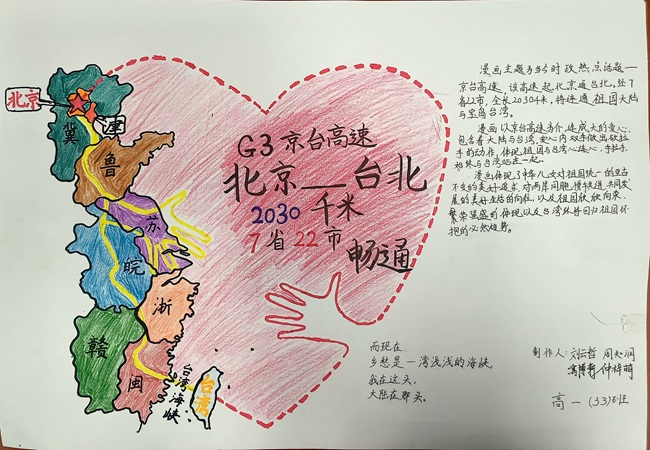 北京
津
冀
鲁
苏
皖
浙
赣
闽
台湾海峡
台湾
G3京台高速
北京__台北
2030千米
7省22市
畅通
漫画主题为当今时政热点话题—
京台高速。该高速起北京通台北,经7
省22市,全长2030千米,将连通祖国大陆
与宝岛台湾。
漫画以京台高速为介,连成大的爱心,
包含着大陆与台湾,爱心内双手做出欲拉
手的动作,体现祖国与台湾心连心,手拉手
始终与台湾站在一起。
漫画体现了中华儿女对祖国统一的亘古
不变的美好追求,对两岸同胞携手进,共同发
展的美好生活的向往,以及祖国欣欣向荣,
繁荣强盛的体现以及台湾终将回归祖国怀
抱的必然趋势。
而现在
乡愁是一湾浅浅的海峡
我在这头,
大陆在那头。
制作人:
高一(33)班